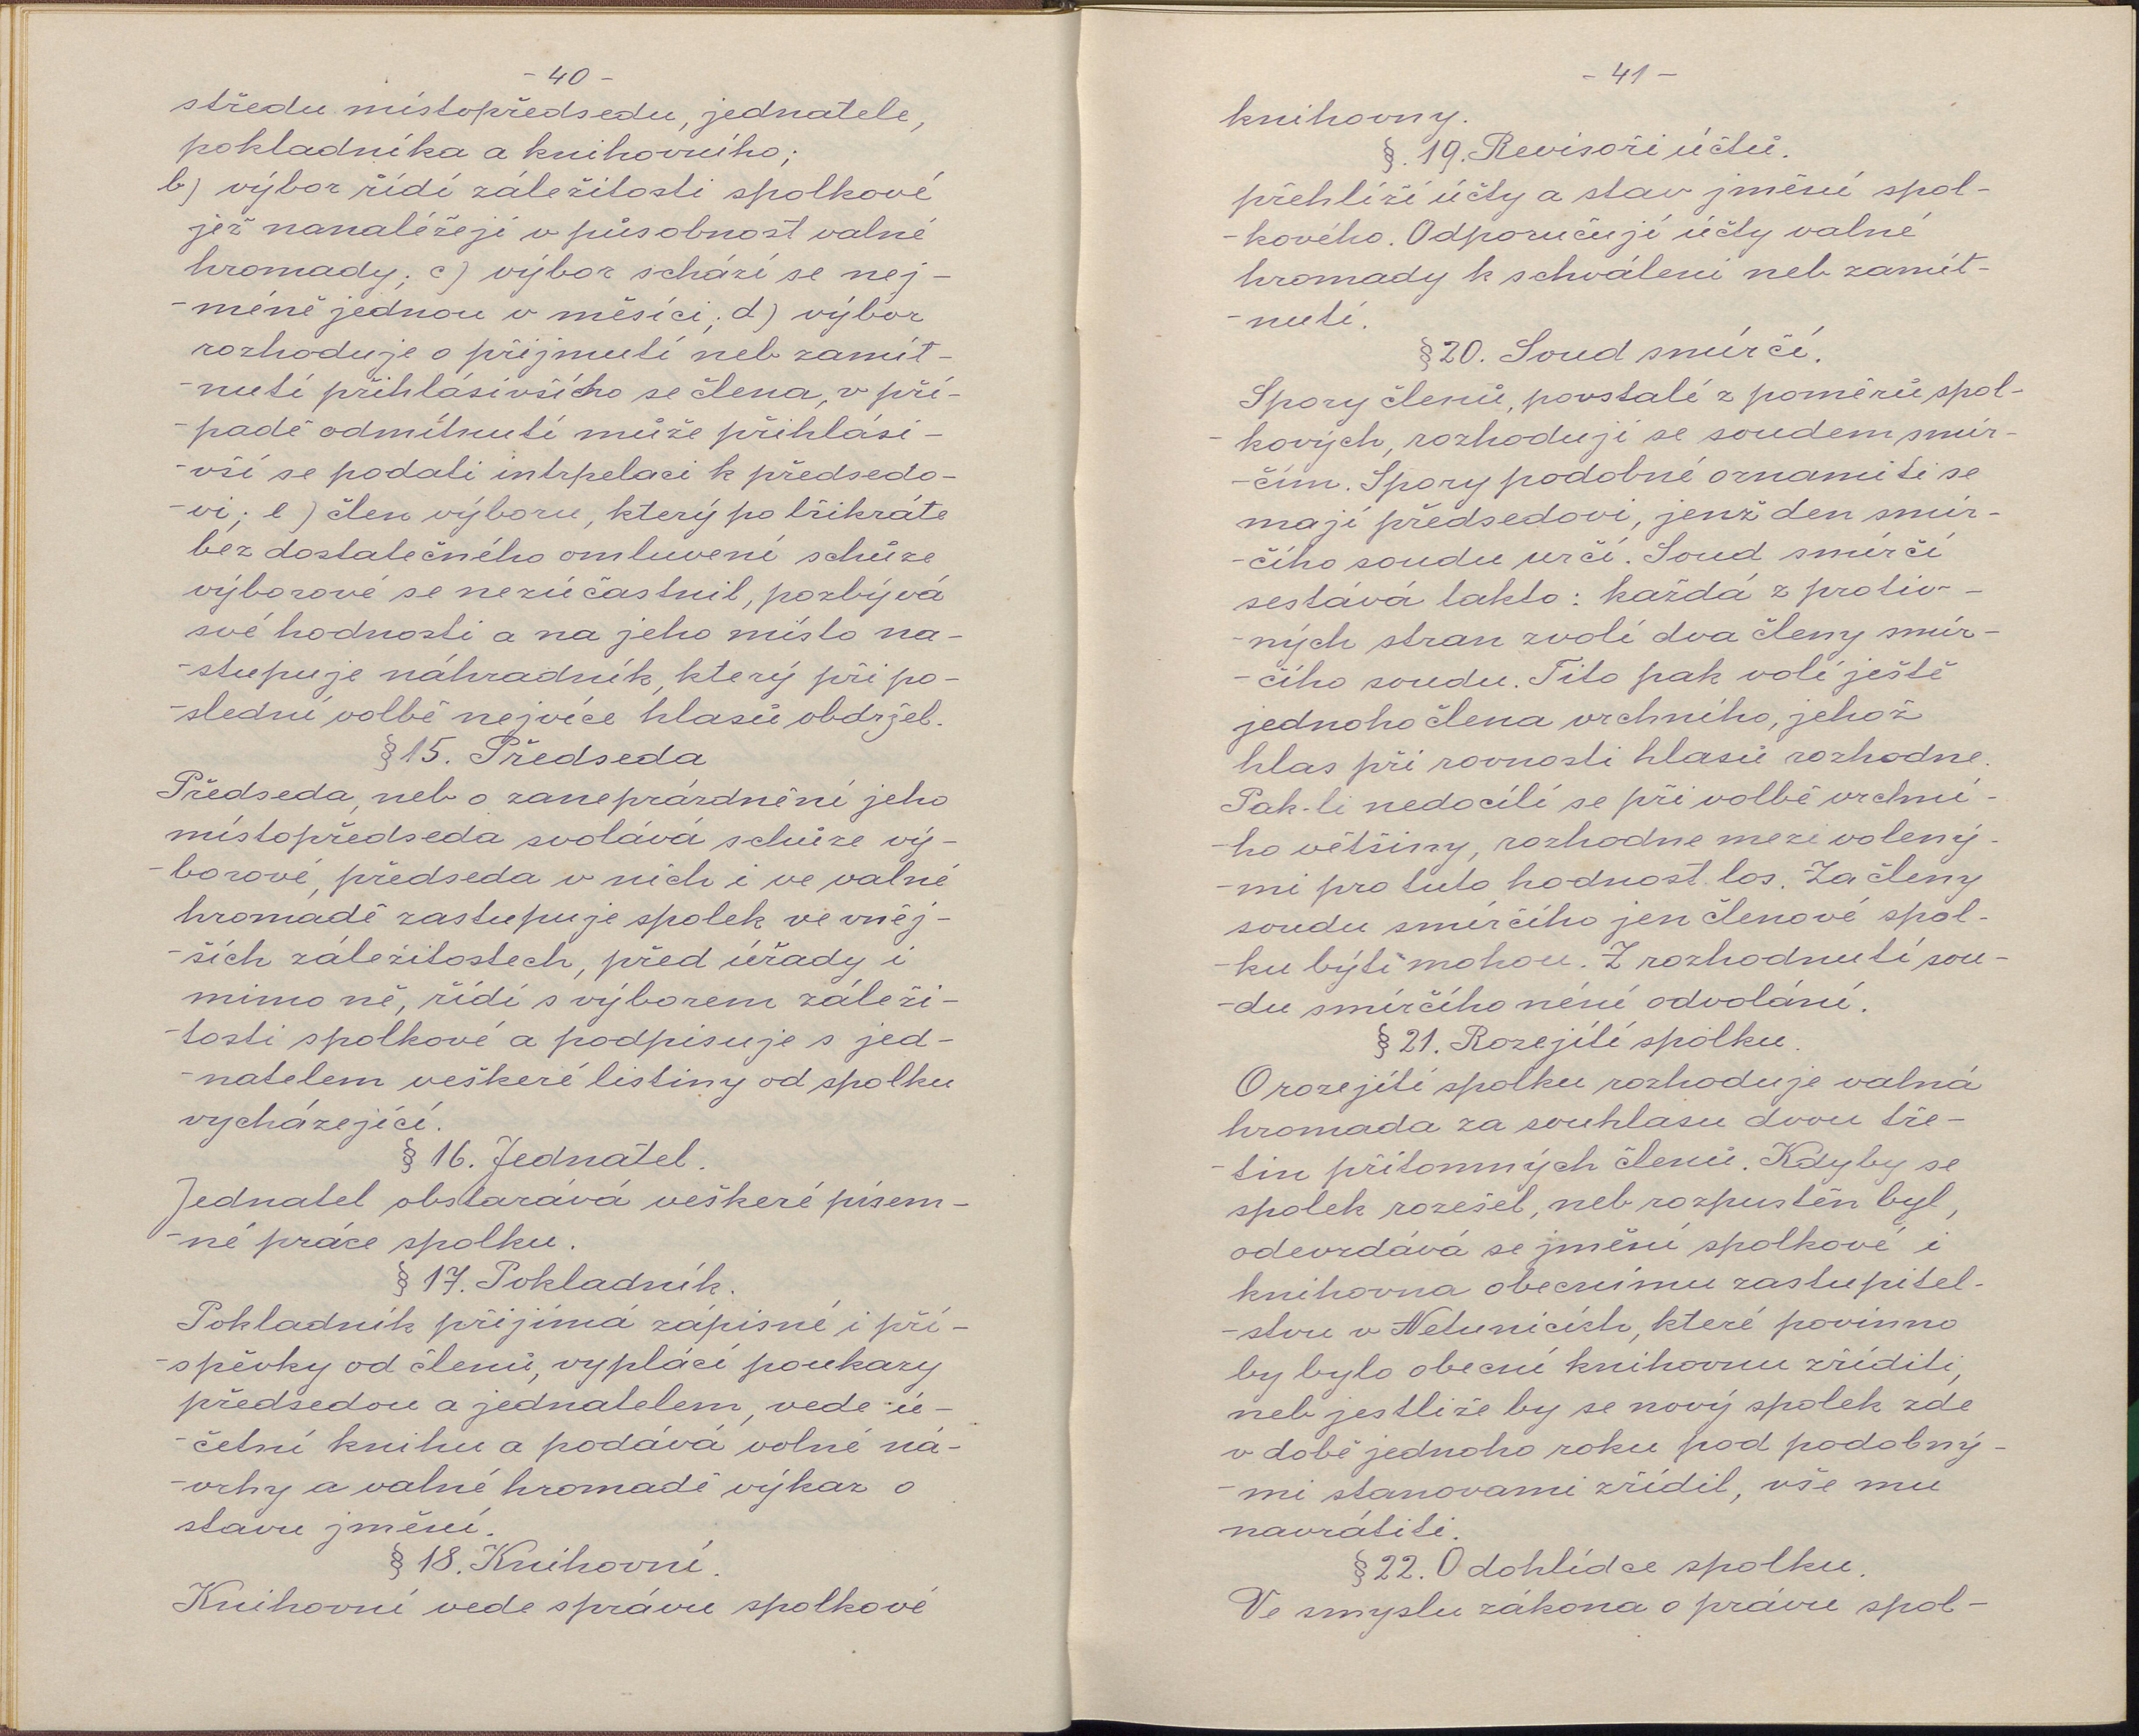 - 40 -
středu místopředsedu, jednatele,
pokladníka a knihovního;
b) výbor řídí záležitosti spolkové
jež nanaléžejí v působnost valné
hromady; c) výbor schází se nej-
-méně jednou v měsíci; d) výbor
rozhoduje o přijmutí neb zamít-
-nutí přihlásivšícho se člena, v pří-
-padě odmítnutí může přihlási-
-vší se podati intrpelaci k předsedo-
-vi; e) člen výboru, který po třikráte
bez dostatečného omluvení schůze
výborové se nezúčastnil, pozbývá
své hodnosti a na jeho místo na-
-stupuje náhradník, který při po-
-slední volbě nejvíce hlasů obdržel.
§ 15. Předseda
Předseda, neb o zaneprázdnění jeho
místopředseda svolává schůze vý-
-borové, předseda v nich i ve valné
hromadě zastupuje spolek ve vněj-
-ších záležitostech, před úřady i
mimo ně, řídí s výborem záleži-
-tosti spolkové a podpisuje s jed-
-natelem veškeré listiny od spolku
vycházející.
§ 16. Jednatel.
Jednatel obstarává veškeré písem-
-né práce spolku.
§ 17. Pokladník.
Pokladník přijímá zápisné i pří-
-spěvky od členů, vyplácí poukazy
předsedou a jednatelem, vede ú-
-četní knihu a podává volné ná-
-vrhy a valné hromadě výkaz o
stavu jmění.
§ 18. Knihovní.
Knihovní vede správu spolkové
- 41 -
knihovny.
§. 19. Revisoři účtů.
přehlíží účty a stav jmění spol-
-kového. Odporučují účty valné
hromady k schválení neb zamít-
-nutí.
§ 20. Soud smírčí.
Spory členů, povstalé z poměrů spol-
-kových, rozhodují se soudem smír-
-čím. Spory podobné oznamiti se
mají předsedovi, jenž den smír-
-čího soudu určí. Soud smírčí
sestává takto: každá z protiv-
-ných stran zvolí dva členy smír-
-čího soudu. Tito pak volí ještě
jednoho člena vrchního, jehož
hlas při rovnosti hlasů rozhodne.
Pak-li nedocílí se při volbě vrchní-
-ho většiny, rozhodne mezi volený-
-mi pro tuto hodnost los. Za členy
soudu smírčího jen členové spol-
-ku býti mohou. Z rozhodnutí sou-
-du smírčího néní odvolání.
§ 21. Rozejítí spolku.
O rozejítí spolku rozhoduje valná
hromada za souhlasu dvou tře-
-tin přítomných členů. Kdyby se
spolek rozešel, neb rozpustěn byl,
odevzdává se jmění spolkové i
knihovna obecnímu zastupitel-
-stvu v Netunicích, které povinno
by bylo obecní knihovnu zříditi,
neb jestliže by se nový spolek zde
v době jednoho roku pod podobný-
-mi stanovami zřídil, vše mu
navrátiti.
§ 22. O dohlídce spolku.
Ve smyslu zákona o právu spol-